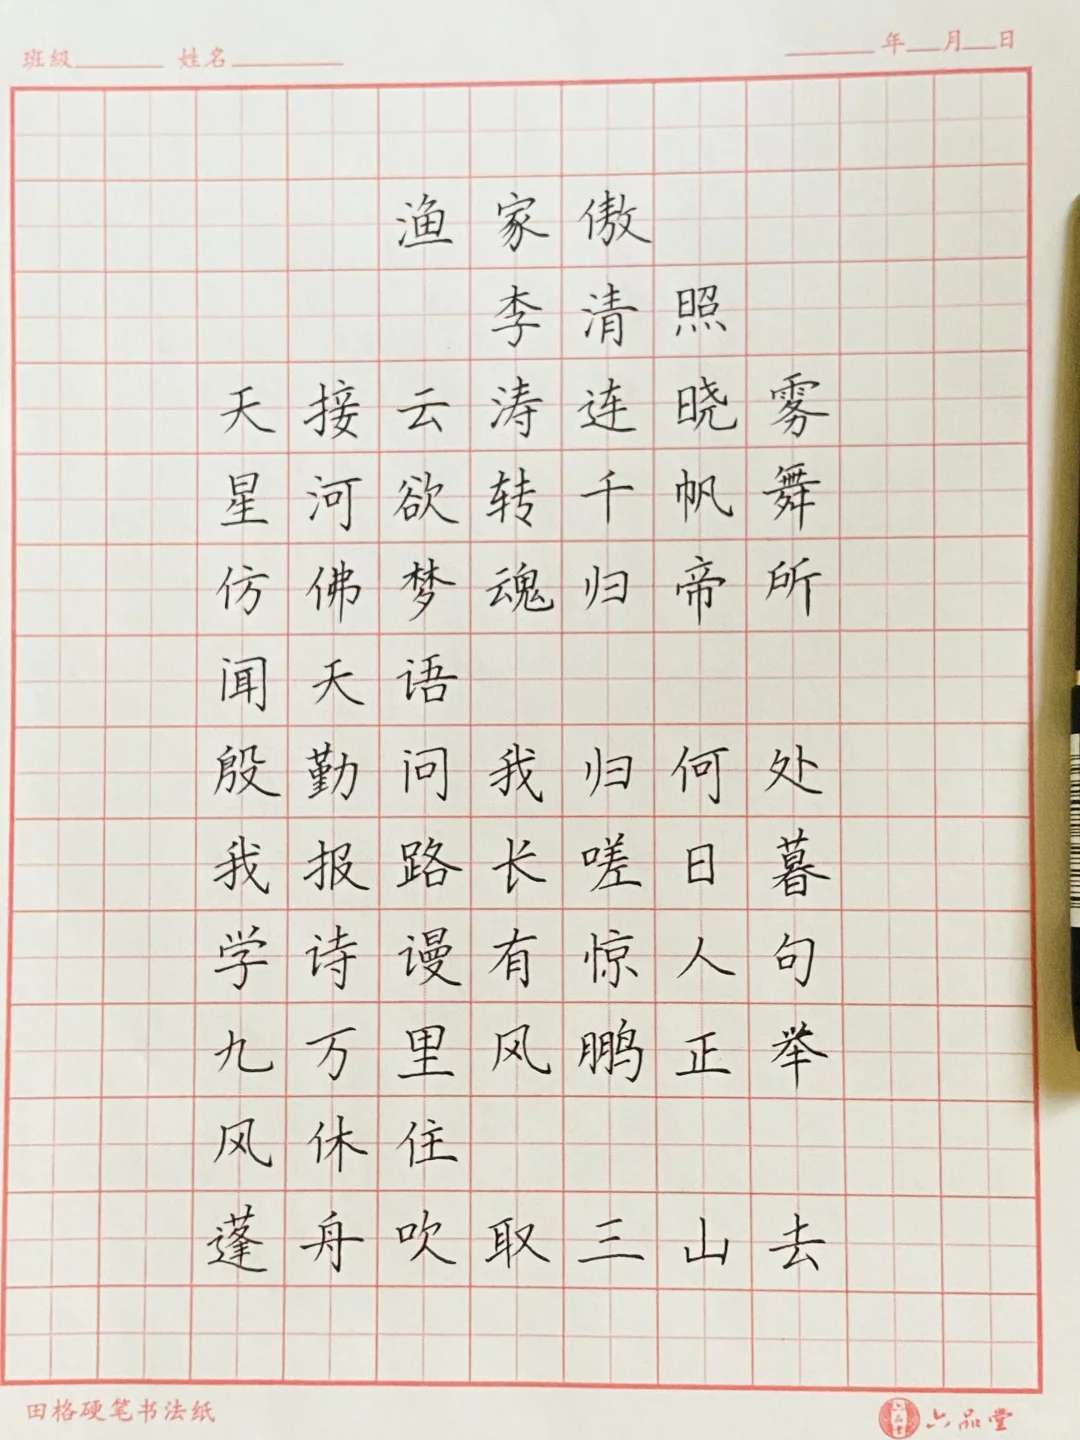 班级 姓名 年 月 日
渔家傲
李清照
天接云涛连晓雾
星河欲转千帆舞
仿佛梦魂归帝所
闻天语
殷勤问我归何处
我报路长嗟日暮
学诗谩有惊人句
九万里风鹏正举
风休住
蓬舟吹取三山去
田格硬笔书法纸
六品堂 六品堂